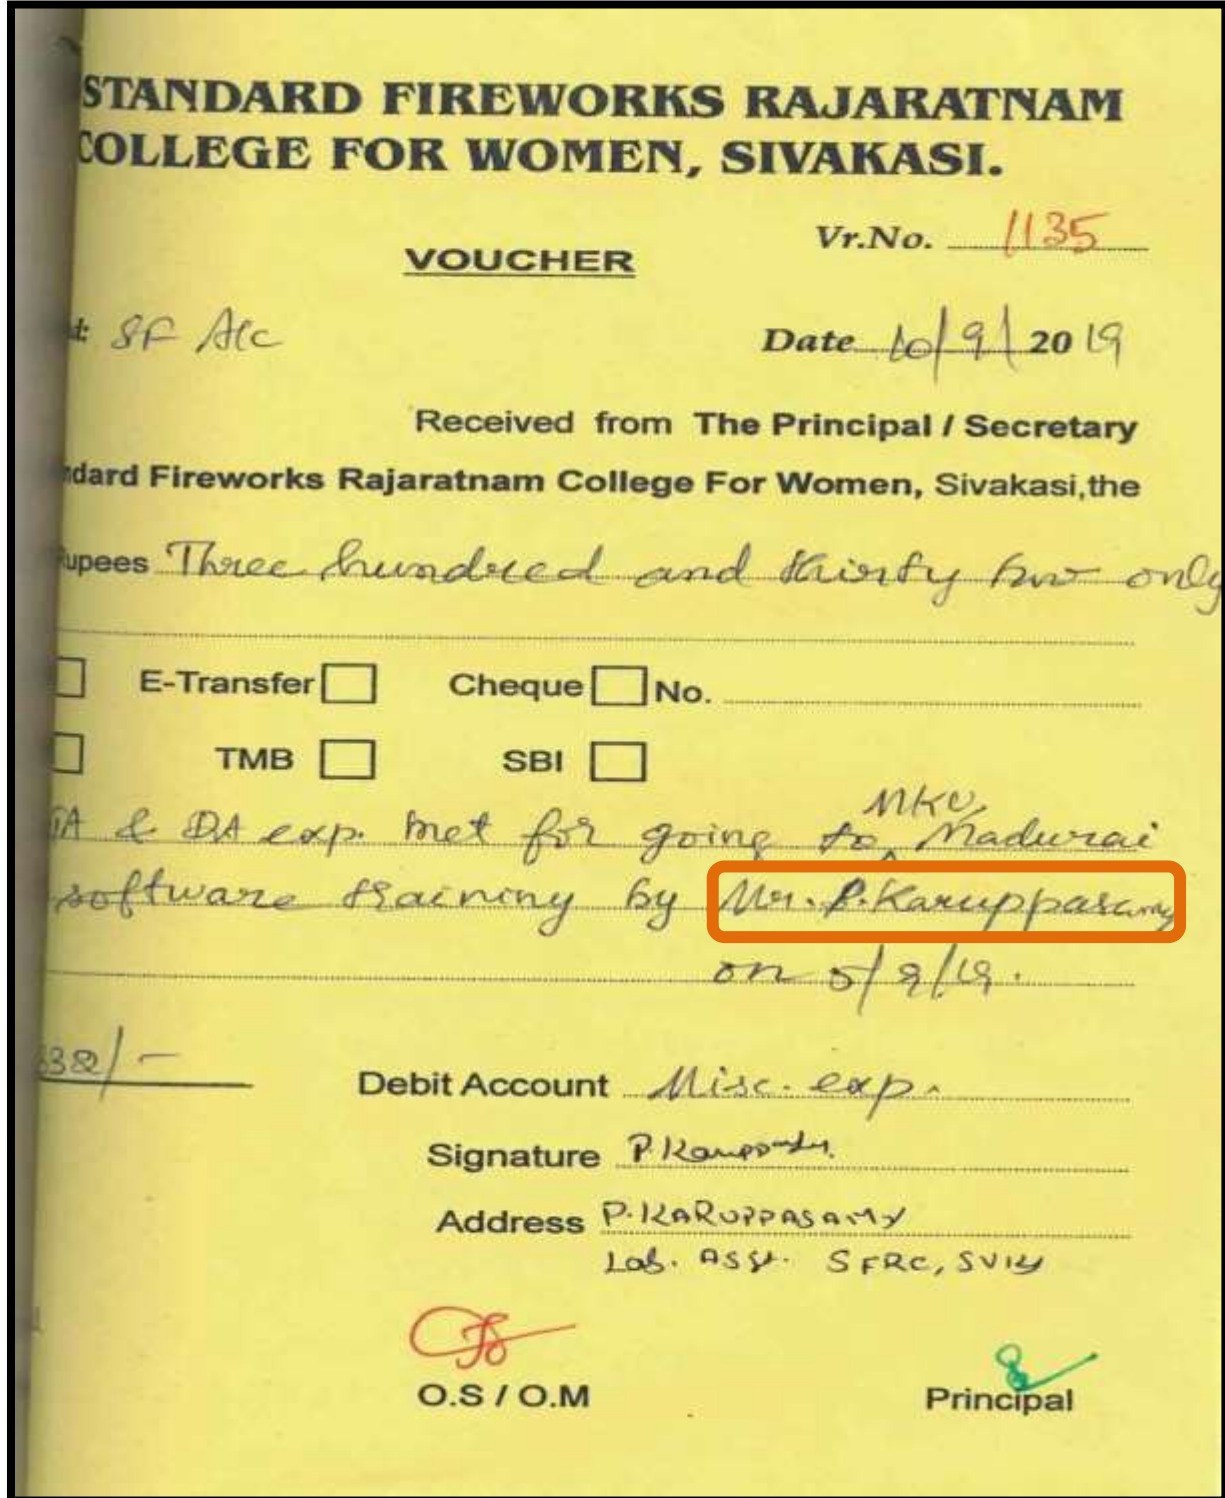 STANDARD FIREWORKS RAJARATNAM
COLLEGE FOR WOMEN, SIVAKASI.
Vr.No. 1135
VOUCHER
SF A/c
Date 10/9/2019
Received from The Principal / Secretary
ndard Fireworks Rajaratnam College For Women, Sivakasi,the
upees Three hundred and thirty two only
E-Transfer Cheque No.
TMB SBI
MKU,
TA & DA exp. met for going to ^ Madurai
software training by Mr. P.Karuppasamy
on 5/9/19.
332/-
Debit Account Misc. exp.
Signature P.Karuppasamy
Address P.KARUPPASAMY
Lab. Asst. SFRC, SVK
O.S / O.M
Principal